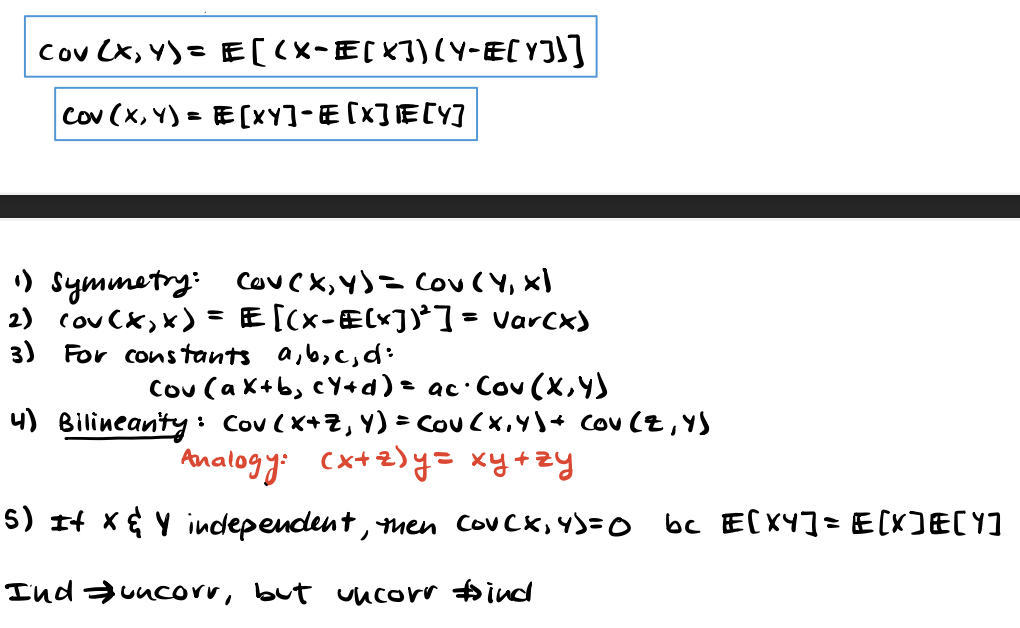 Cov(X,Y) = 𝔼[(X-𝔼[X])(Y-𝔼[Y])]
Cov(X,Y) = 𝔼[XY]-𝔼[X]𝔼[Y]
1) Symmetry: Cov(X,Y) = Cov(Y,X)
2) Cov(X,X) = 𝔼[(X-𝔼[X])²] = Var(X)
3) For constants a,b,c,d:
Cov(aX+b, cY+d) = ac·Cov(X,Y)
4) Bilinearity: Cov(X+Z,Y) = Cov(X,Y) + Cov(Z,Y)
Analogy: (x+z)y = xy+zy
5) If X & Y independent, then Cov(X,Y)=0 bc 𝔼[XY] = 𝔼[X]𝔼[Y]
Ind ⇒ uncorr, but uncorr ⇏ ind